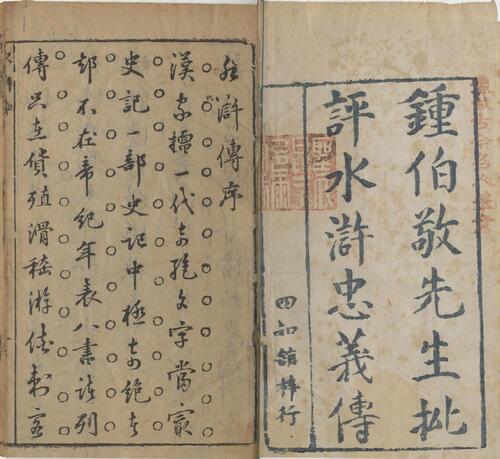 鍾伯敬先生批
評水滸忠義傳
四知館梓行
水滸傳序
漢家擅一代奇絕文字當㝡
史記一部史記中極奇絕者
却不在帝紀年表八書諸列
傳只在貨殖滑稽游俠刺客